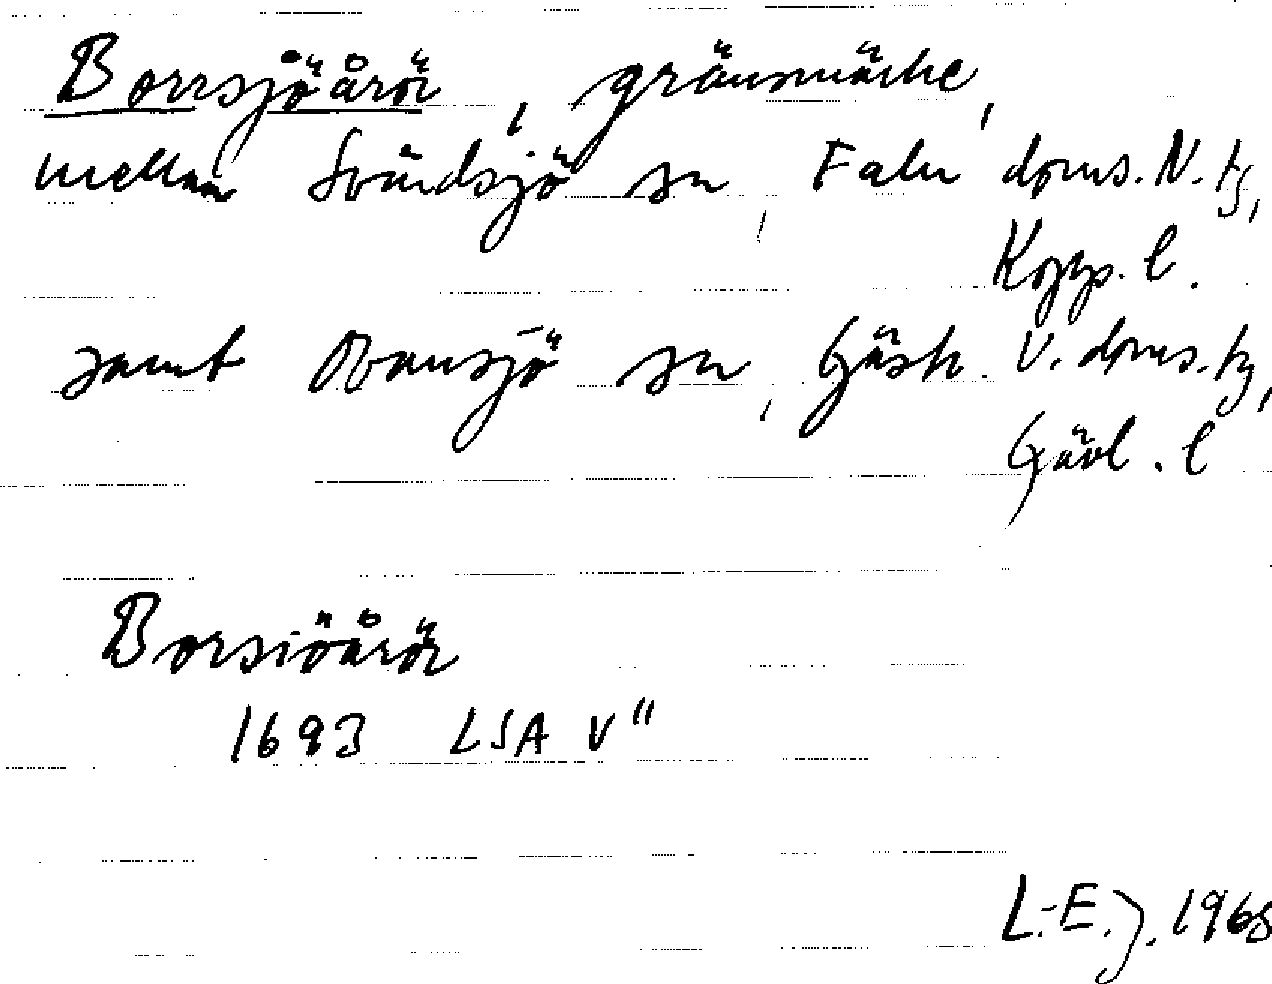 Borrsjöårör, gränsmärke,
mellan Svärdsjö sn, Falu doms. N. tg,
Kopp. l.
samt Ovansjö sn, Gästr. V. doms. tg,
Gävl. l
Borsiöårör
1693 LSA V"
L.-E. J. 1968